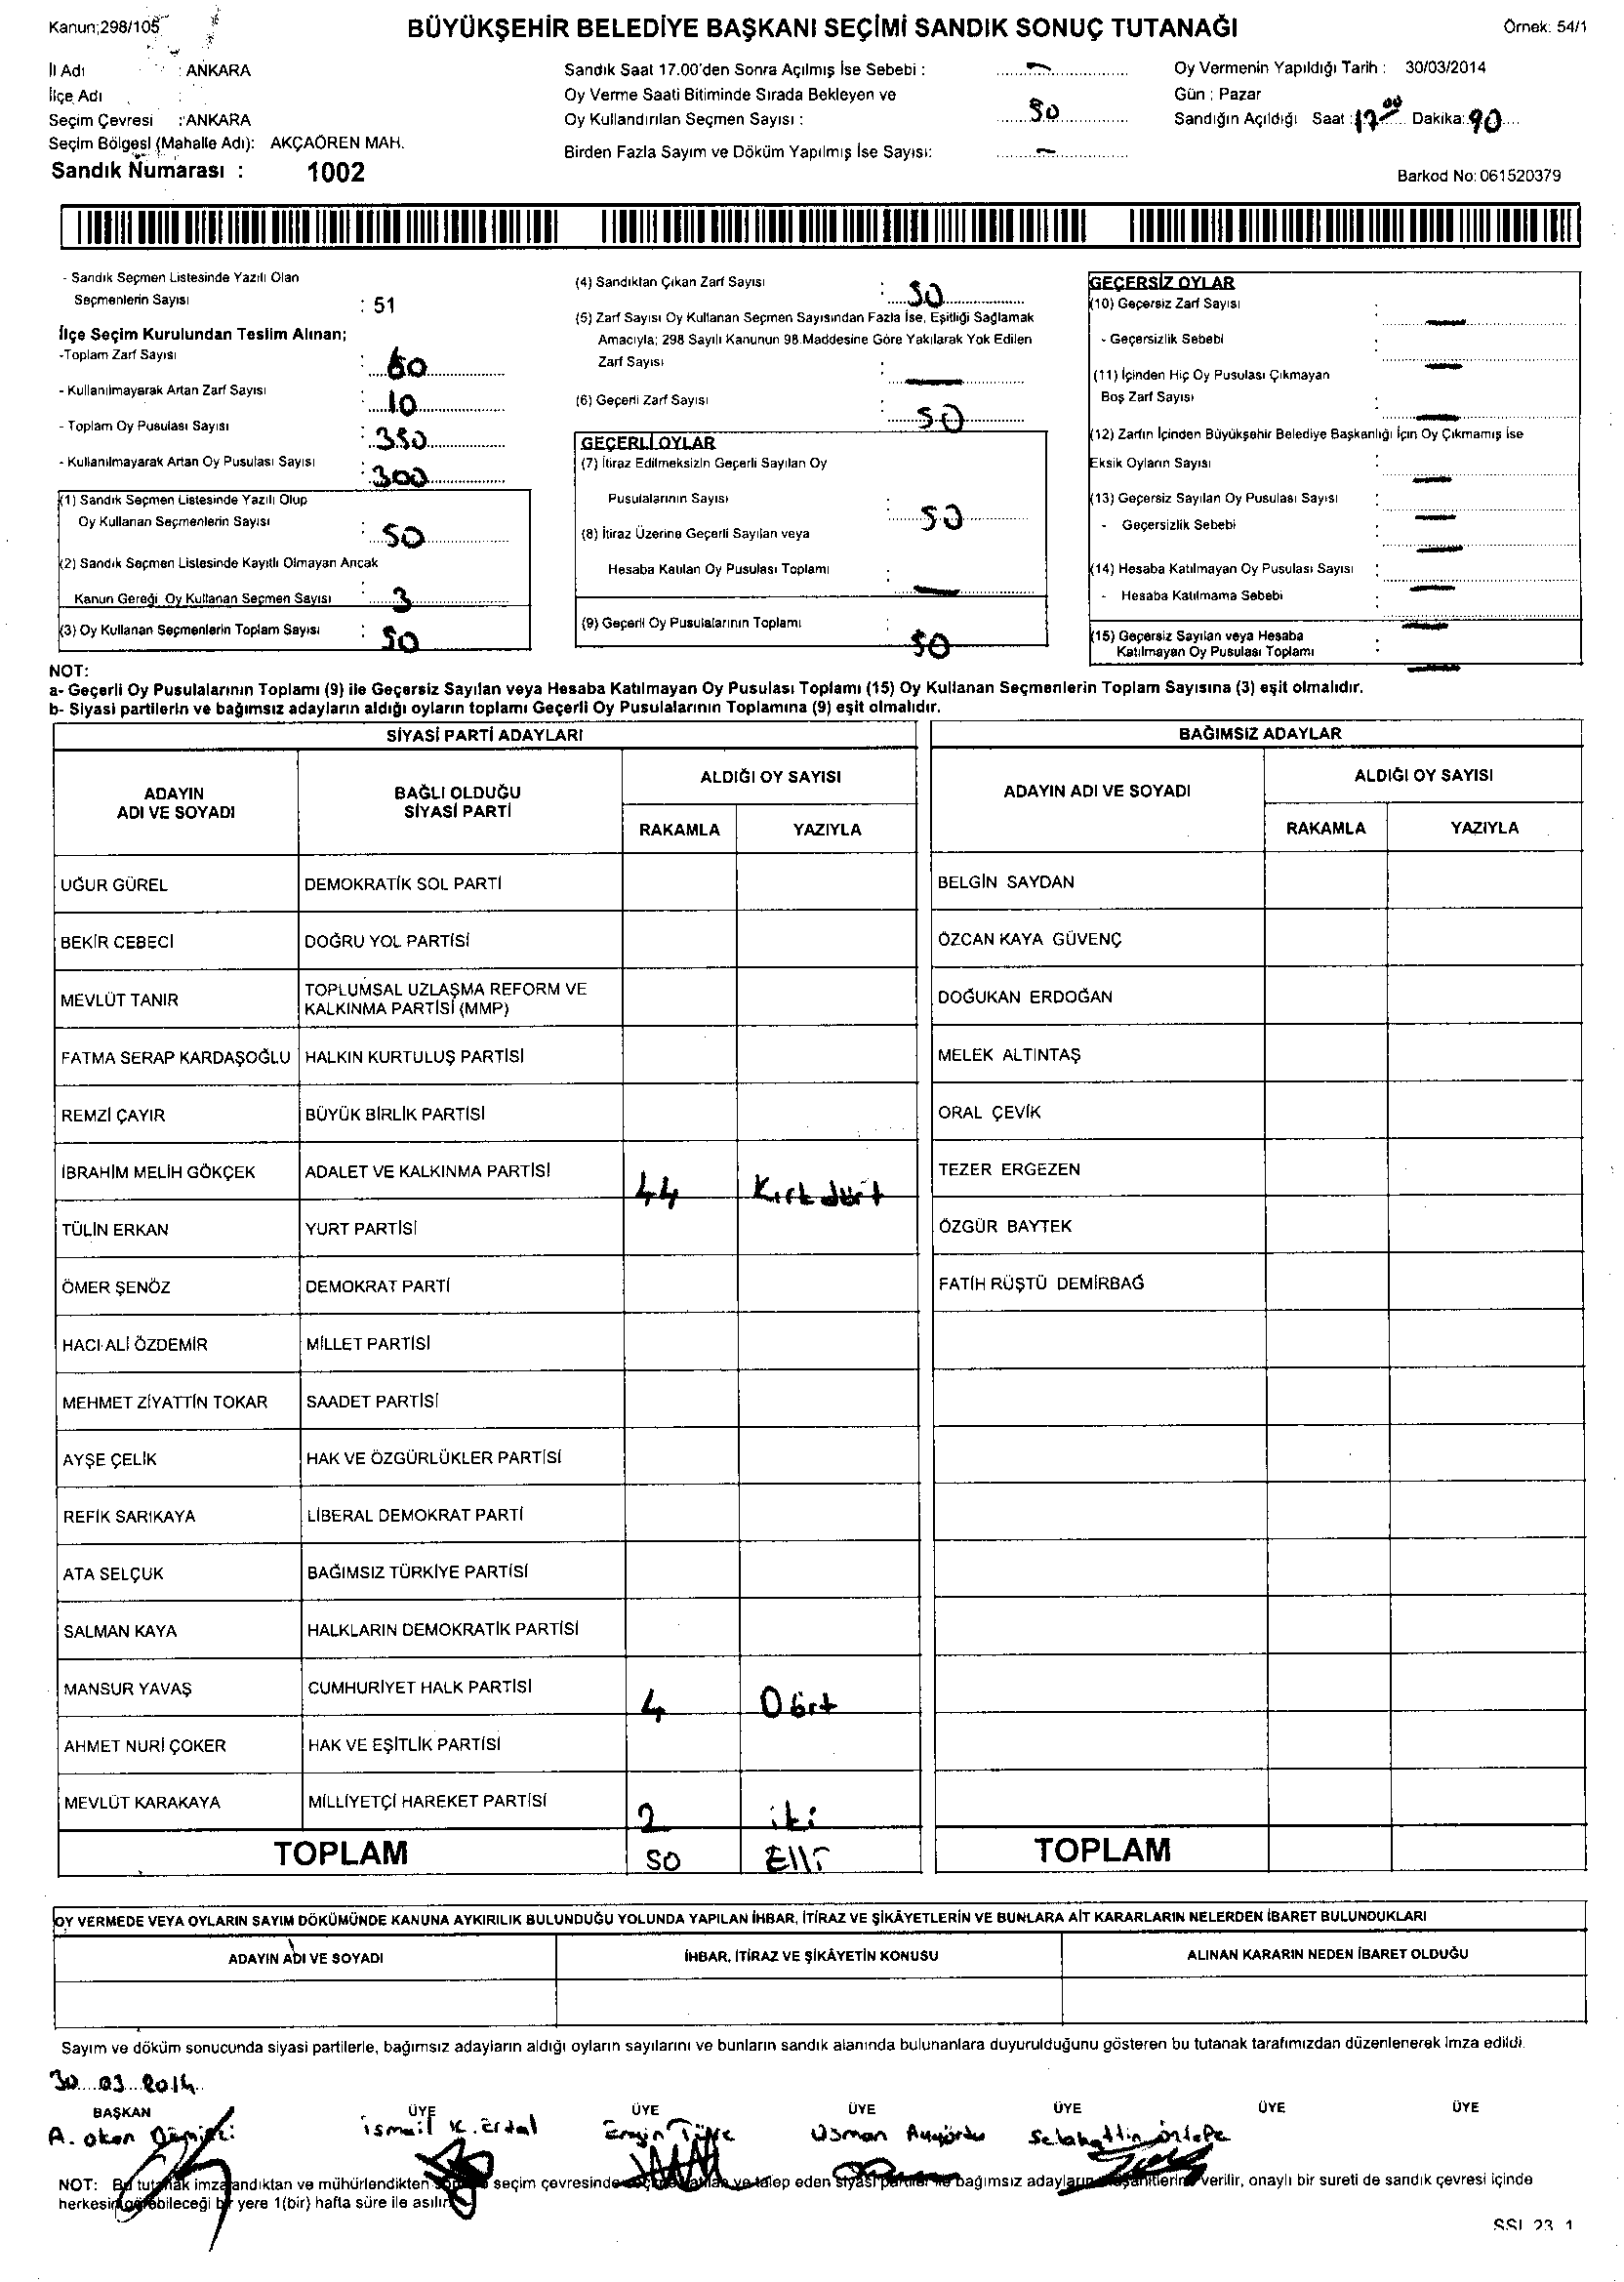 Kanun;298/105
BÜYÜKŞEHİR BELEDİYE BAŞKANI SEÇİMİ SANDIK SONUÇ TUTANAĞI
Örnek: 54/1
İl Adı : ANKARA
İlçe Adı :
Seçim Çevresi : ANKARA
Seçim Bölgesi (Mahalle Adı): AKÇAÖREN MAH.
Sandık Numarası : 1002
Sandık Saat 17.00'den Sonra Açılmış İse Sebebi : —
Oy Verme Saati Bitiminde Sırada Bekleyen ve
Oy Kullandırılan Seçmen Sayısı : 50
Birden Fazla Sayım ve Döküm Yapılmış İse Sayısı: —
Oy Vermenin Yapıldığı Tarih : 30/03/2014
Gün : Pazar
Sandığın Açıldığı Saat : 17 00 Dakika:
Barkod No: 061520379
- Sandık Seçmen Listesinde Yazılı Olan
Seçmenlerin Sayısı : 51
İlçe Seçim Kurulundan Teslim Alınan;
-Toplam Zarf Sayısı : 60
- Kullanılmayarak Artan Zarf Sayısı : 10
- Toplam Oy Pusulası Sayısı : 350
- Kullanılmayarak Artan Oy Pusulası Sayısı : 300
(1) Sandık Seçmen Listesinde Yazılı Olup
Oy Kullanan Seçmenlerin Sayısı : 50
(2) Sandık Seçmen Listesinde Kayıtlı Olmayan Ancak
Kanun Gereği Oy Kullanan Seçmen Sayısı : 3
(3) Oy Kullanan Seçmenlerin Toplam Sayısı : 50
(4) Sandıktan Çıkan Zarf Sayısı : 50
(5) Zarf Sayısı Oy Kullanan Seçmen Sayısından Fazla İse, Eşitliği Sağlamak
Amacıyla; 298 Sayılı Kanunun 98.Maddesine Göre Yakılarak Yok Edilen
Zarf Sayısı : —
(6) Geçerli Zarf Sayısı : 50
GEÇERLİ OYLAR
(7) İtiraz Edilmeksizin Geçerli Sayılan Oy
Pusulalarının Sayısı : 50
(8) İtiraz Üzerine Geçerli Sayılan veya
Hesaba Katılan Oy Pusulası Toplamı : —
(9) Geçerli Oy Pusulalarının Toplamı : 50
GEÇERSİZ OYLAR
(10) Geçersiz Zarf Sayısı : —
- Geçersizlik Sebebi : —
(11) İçinden Hiç Oy Pusulası Çıkmayan
Boş Zarf Sayısı : —
(12) Zarfın İçinden Büyükşehir Belediye Başkanlığı İçin Oy Çıkmamış İse
Eksik Oyların Sayısı : —
(13) Geçersiz Sayılan Oy Pusulası Sayısı : —
- Geçersizlik Sebebi : —
(14) Hesaba Katılmayan Oy Pusulası Sayısı : —
- Hesaba Katılmama Sebebi : —
(15) Geçersiz Sayılan veya Hesaba
Katılmayan Oy Pusulası Toplamı : —
NOT:
a- Geçerli Oy Pusulalarının Toplamı (9) ile Geçersiz Sayılan veya Hesaba Katılmayan Oy Pusulası Toplamı (15) Oy Kullanan Seçmenlerin Toplam Sayısına (3) eşit olmalıdır.
b- Siyasi partilerin ve bağımsız adayların aldığı oyların toplamı Geçerli Oy Pusulalarının Toplamına (9) eşit olmalıdır.
SİYASİ PARTİ ADAYLARI
ADAYIN ADI VE SOYADI
BAĞLI OLDUĞU SİYASİ PARTİ
ALDIĞI OY SAYISI
RAKAMLA YAZIYLA
UĞUR GÜREL DEMOKRATİK SOL PARTİ
BEKİR CEBECİ DOĞRU YOL PARTİSİ
MEVLÜT TANIR TOPLUMSAL UZLAŞMA REFORM VE
KALKINMA PARTİSİ (MMP)
FATMA SERAP KARDAŞOĞLU HALKIN KURTULUŞ PARTİSİ
REMZİ ÇAYIR BÜYÜK BİRLİK PARTİSİ
İBRAHİM MELİH GÖKÇEK ADALET VE KALKINMA PARTİSİ 44 Kırk dört
TÜLİN ERKAN YURT PARTİSİ
ÖMER ŞENÖZ DEMOKRAT PARTİ
HACI ALİ ÖZDEMİR MİLLET PARTİSİ
MEHMET ZİYATTİN TOKAR SAADET PARTİSİ
AYŞE ÇELİK HAK VE ÖZGÜRLÜKLER PARTİSİ
REFİK SARIKAYA LİBERAL DEMOKRAT PARTİ
ATA SELÇUK BAĞIMSIZ TÜRKİYE PARTİSİ
SALMAN KAYA HALKLARIN DEMOKRATİK PARTİSİ
MANSUR YAVAŞ CUMHURİYET HALK PARTİSİ 4 Dört
AHMET NURİ ÇOKER HAK VE EŞİTLİK PARTİSİ
MEVLÜT KARAKAYA MİLLİYETÇİ HAREKET PARTİSİ 2 iki
TOPLAM 50 Elli
BAĞIMSIZ ADAYLAR
ADAYIN ADI VE SOYADI
ALDIĞI OY SAYISI
RAKAMLA YAZIYLA
BELGİN SAYDAN
ÖZCAN KAYA GÜVENÇ
DOĞUKAN ERDOĞAN
MELEK ALTINTAŞ
ORAL ÇEVİK
TEZER ERGEZEN
ÖZGÜR BAYTEK
FATİH RÜŞTÜ DEMİRBAĞ
TOPLAM
OY VERMEDE VEYA OYLARIN SAYIM DÖKÜMÜNDE KANUNA AYKIRILIK BULUNDUĞU YOLUNDA YAPILAN İHBAR, İTİRAZ VE ŞİKÂYETLERİN VE BUNLARA AİT KARARLARIN NELERDEN İBARET BULUNDUKLARI
ADAYIN ADI VE SOYADI İHBAR, İTİRAZ VE ŞİKÂYETİN KONUSU ALINAN KARARIN NEDEN İBARET OLDUĞU
Sayım ve döküm sonucunda siyasi partilerle, bağımsız adayların aldığı oyların sayılarını ve bunların sandık alanında bulunanlara duyurulduğunu gösteren bu tutanak tarafımızdan düzenlenerek imza edildi.
30.03.2014
BAŞKAN ÜYE ÜYE ÜYE ÜYE ÜYE ÜYE
A. Okan ismail K. Erdal Engin Osman Selahattin
NOT: Bu tutanak imzalandıktan ve mühürlendikten seçim çevresinde talep eden siyasi partiler ile bağımsız adayların verilir, onaylı bir sureti de sandık çevresi içinde
herkesin görebileceği bir yere 1(bir) hafta süre ile asılır.
SSI 23 1